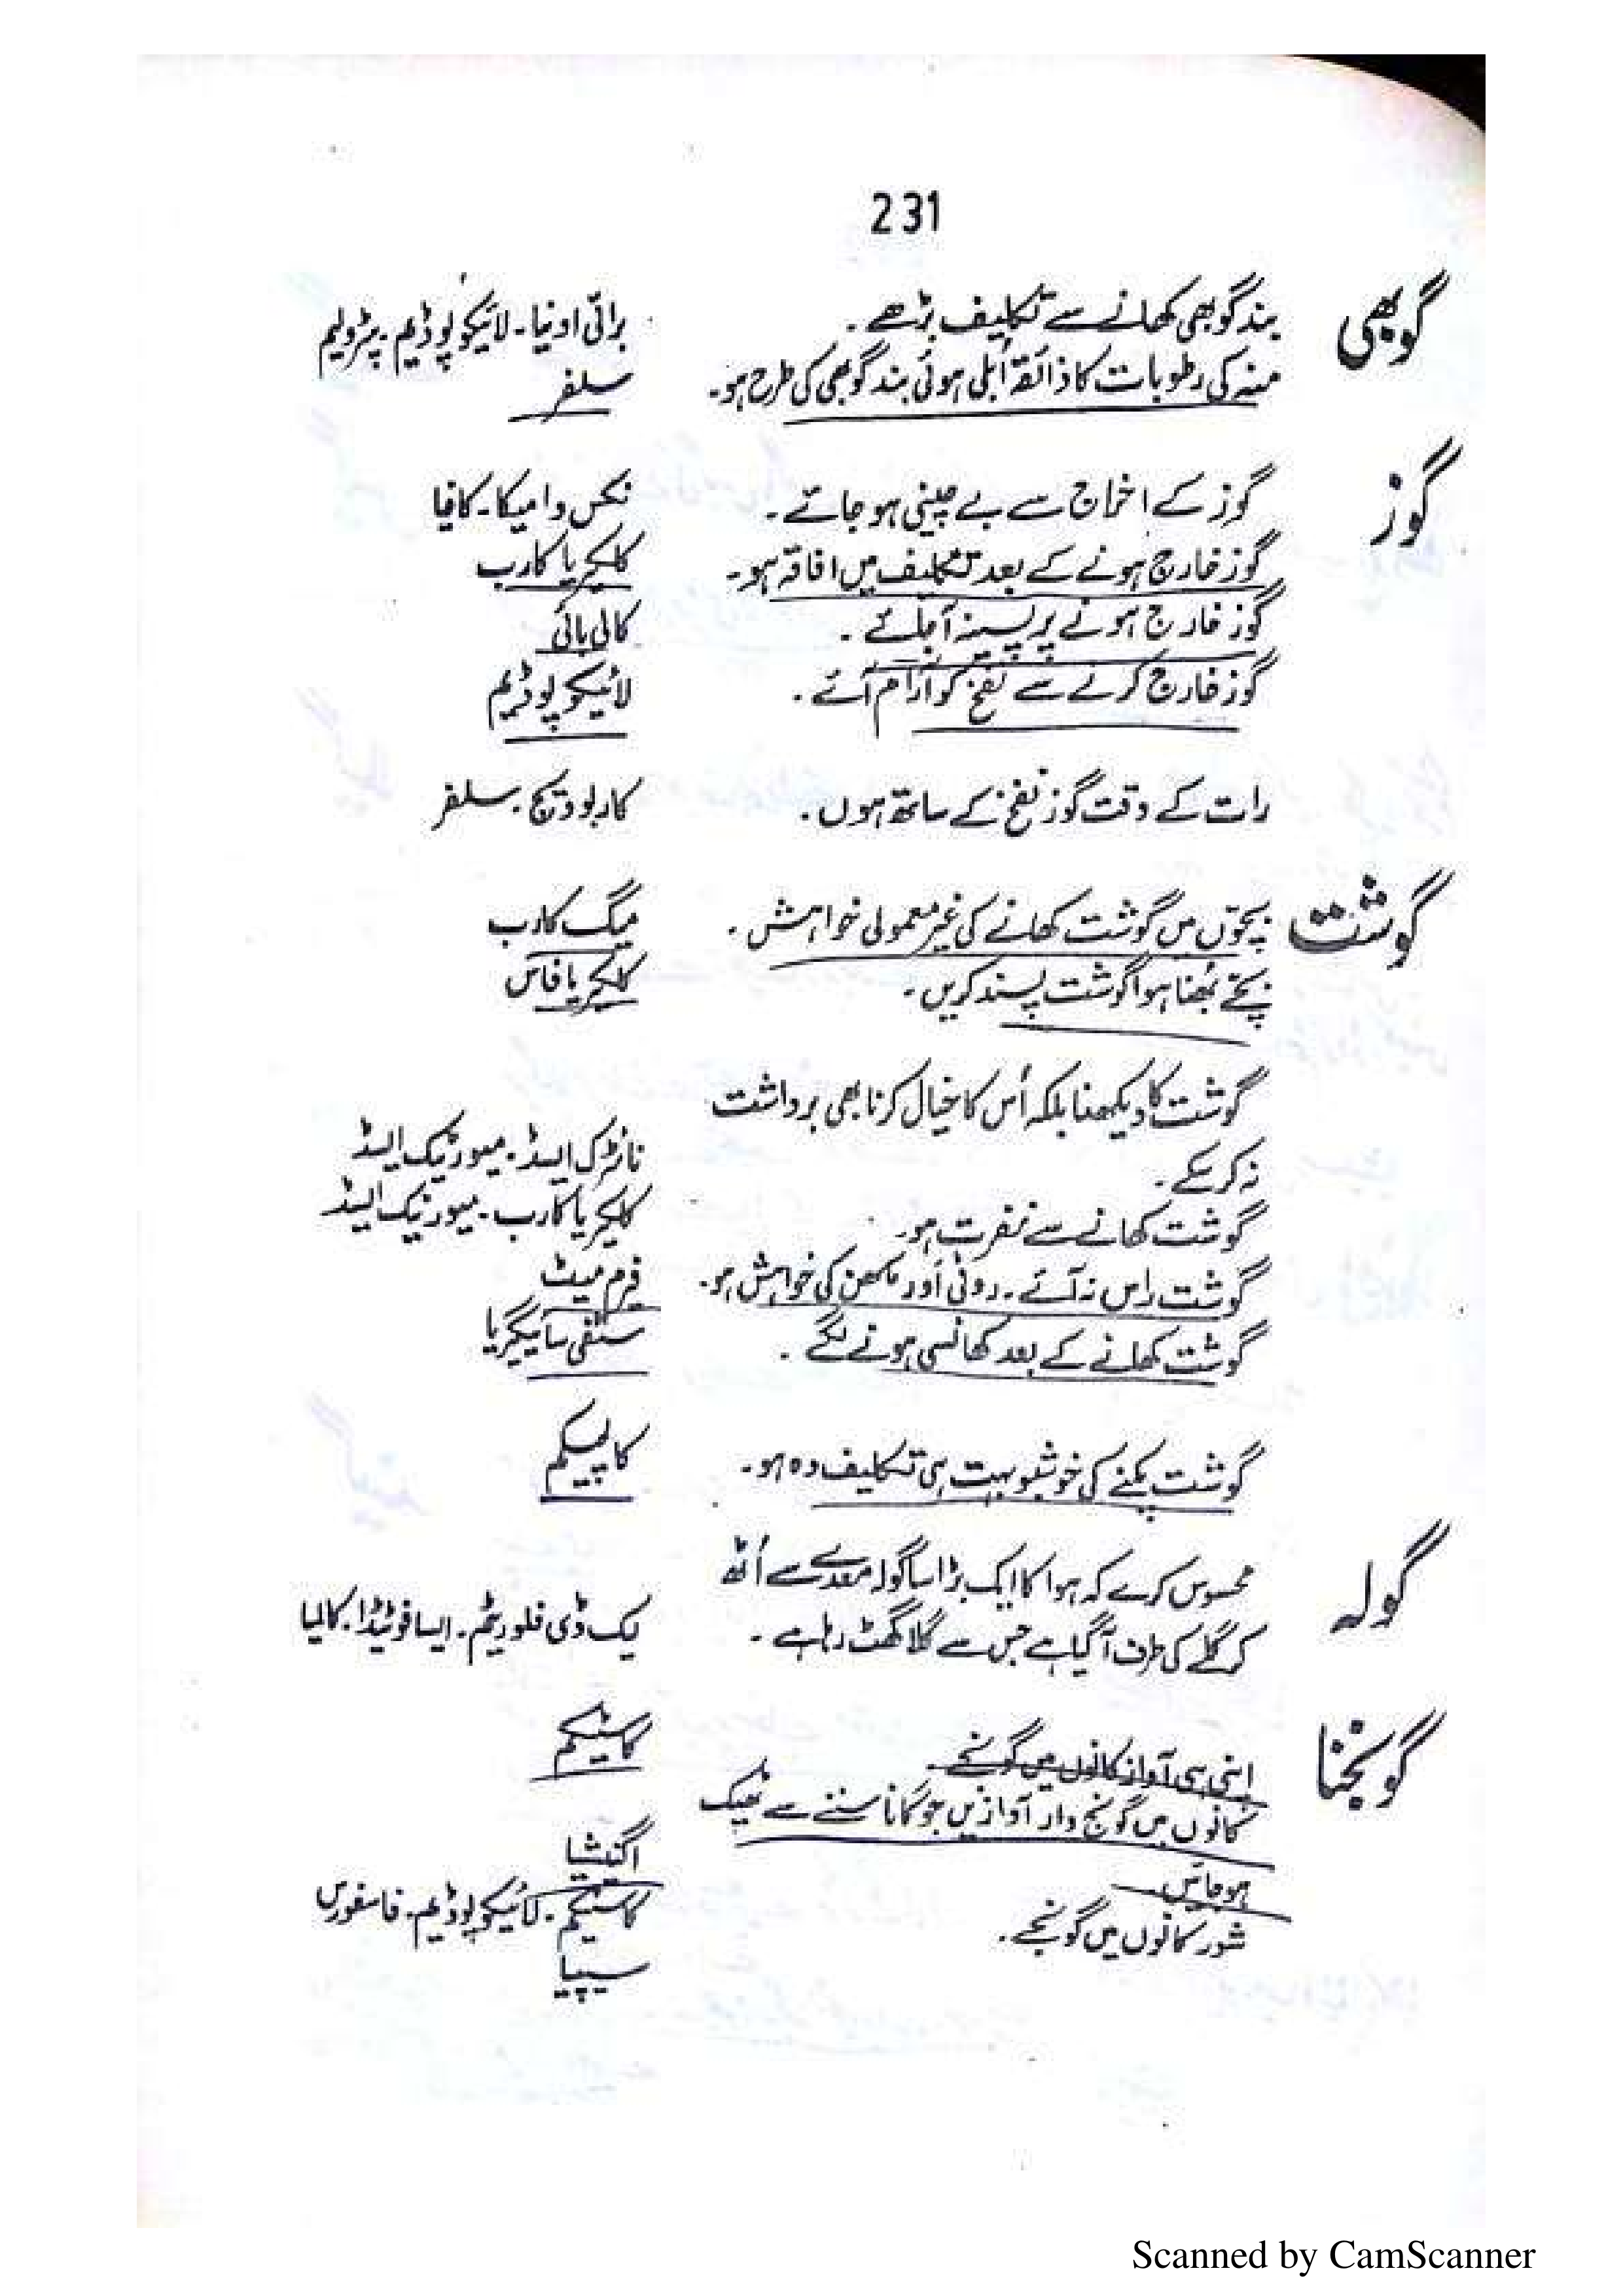 231
گوبھی
بند گوبھی کھانے سے تکلیف بڑھے ۔ برائی اونیا ۔ لائیکوپوڈیم ۔ پٹرولیم
منہ کی رطوبات کا ذائقہ اُبلی ہوئی بند گوبھی کی طرح ہو ۔ سلفر
گوز
گوز کے اخراج سے بے چینی ہو جائے ۔ نکس وامیکا ۔ کافیا
گوز خارج ہونے کے بعد تکلیف میں افاقہ ہو ۔ کلکیریا کارب
گوز خارج ہونے پر پسینہ آجائے ۔ کالی بائی
گوز خارج کرنے سے نفخ کو آرام آئے ۔ لائیکوپوڈیم
رات کے وقت گوز نفخ کے ساتھ ہوں ۔ کاربو ویج ۔ سلفر
گوشت
بچوں میں گوشت کھانے کی غیر معمولی خواہش ۔ میگ کارب
بچے بُھنا ہوا گوشت پسند کریں ۔ کلکیریا فاس
گوشت کا دیکھنا بلکہ اُس کا خیال کرنا بھی برداشت
نہ کر سکے ۔ نائٹرک ایسڈ ۔ میورئیک ایسڈ
گوشت کھانے سے نفرت ہو ۔ کلکیریا کارب ۔ میورئیک ایسڈ
گوشت راس نہ آئے ۔ روٹی اور مکھن کی خواہش ہو ۔ فرم میٹ
گوشت کھانے کے بعد کھانسی ہونے لگے ۔ سٹفی سائیگریا
گوشت پکنے کی خوشبو بہت ہی تکلیف دہ ہو ۔ کاپسیکم
گولہ
محسوس کرے کہ ہوا کا ایک بڑا سا گولہ معدے سے اُٹھ
کر گلے کی طرف آگیا ہے جس سے گلا گھٹ رہا ہے ۔ لیک ڈی فلوریٹم ۔ ایسافوٹیڈا ۔ کالمیا
گونجنا
اپنی ہی آواز کانوں میں گونجے ۔ کاسٹیکم
کانوں میں گونج دار آوازیں جو گانا سننے سے ٹھیک
ہو جائیں ۔ اگنیشیا
شور کانوں میں گونجے ۔ کاسٹیکم ۔ لائیکوپوڈیم ۔ فاسفورس
سیپیا
Scanned by CamScanner